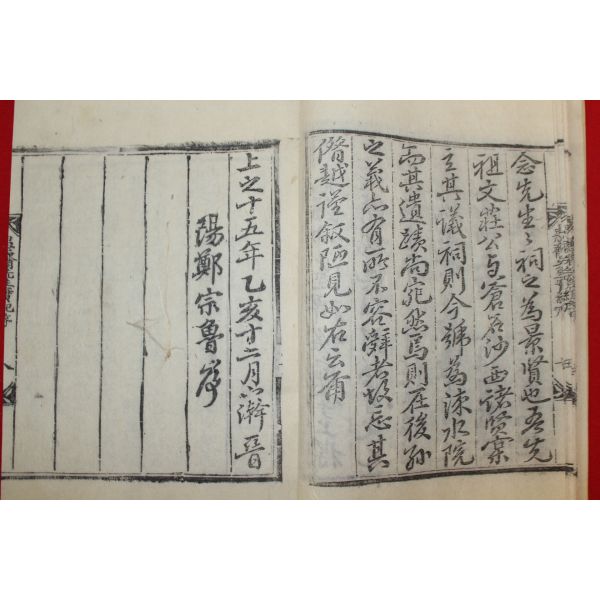 念先生之祠之為景賢也吾先
祖文莊公与蒼石沙西諸賢案
立其議祠則今號為涑水院
而其遺蹟尚宛然焉則在後孫
之義亦有所不容辭者故忘其
僭越謹叙陋見如右云爾
上之十五年乙亥十二月下澣晉
陽鄭宗魯序